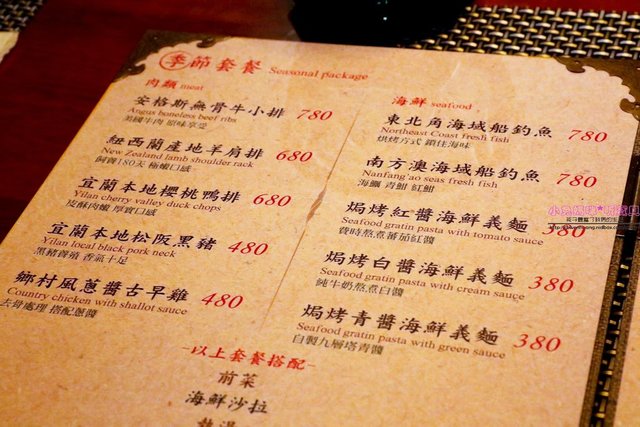 季節套餐 Seasonal package
肉類 meat
安格斯無骨牛小排 780
Angus boneless beef ribs
美國牛肉 原味享受
紐西蘭產地羊肩排 680
New Zealand lamb shoulder rack
飼養180天 極嫩口感
宜蘭本地櫻桃鴨排 680
Yilan cherry valley duck chops
皮酥肉嫩 厚實口感
宜蘭本地松阪黑豬 480
Yilan local black pork neck
黑豬飼養 香氣十足
鄉村風蔥醬古早雞 480
Country chicken with shallot sauce
去骨處理 搭配蔥醬
海鮮 seafood
東北角海域船釣魚 780
Northeast Coast fresh fish
烘烤方式 鎖住海味
南方澳海域船釣魚 780
Nanfang'ao seas fresh fish
海鱺 青魽 紅魽
焗烤紅醬海鮮義麵 380
Seafood gratin pasta with tomato sauce
費時熬煮蕃茄紅醬
焗烤白醬海鮮義麵 380
Seafood gratin pasta with cream sauce
純牛奶熬煮白醬
焗烤青醬海鮮義麵 380
Seafood gratin pasta with green sauce
自製九層塔青醬
-以上套餐搭配-
前菜
海鮮沙拉